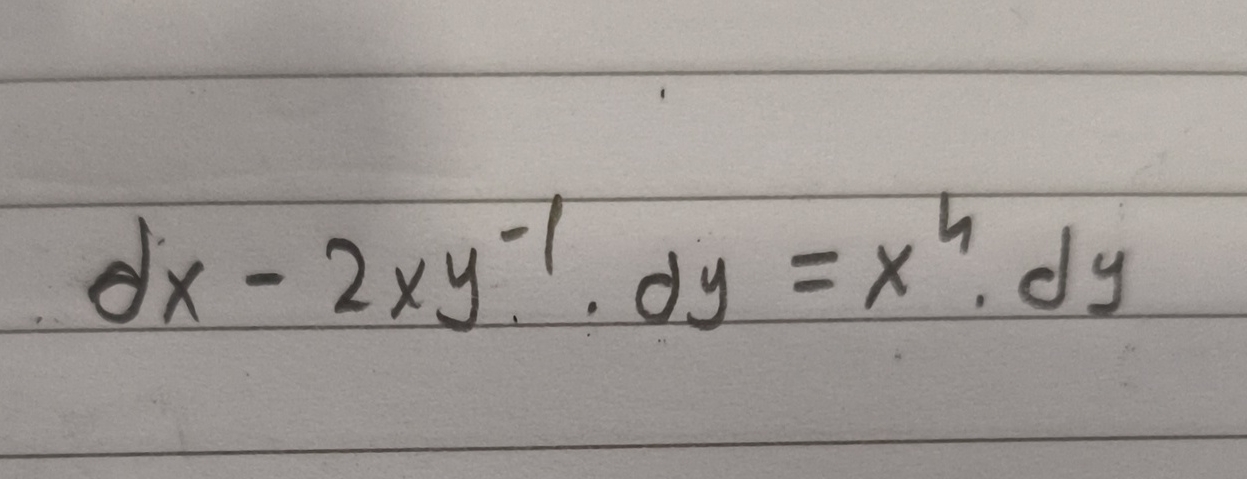 dx - 2xy⁻¹ . dy = x⁴ . dy